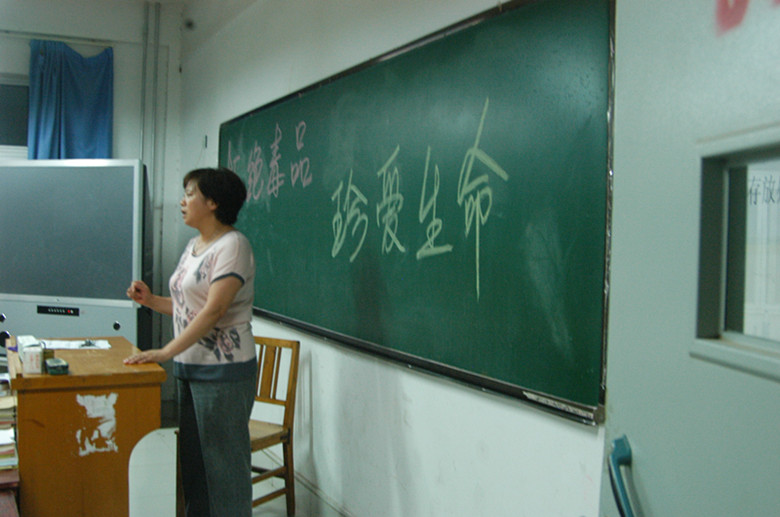 绝毒品
珍爱生命
存放